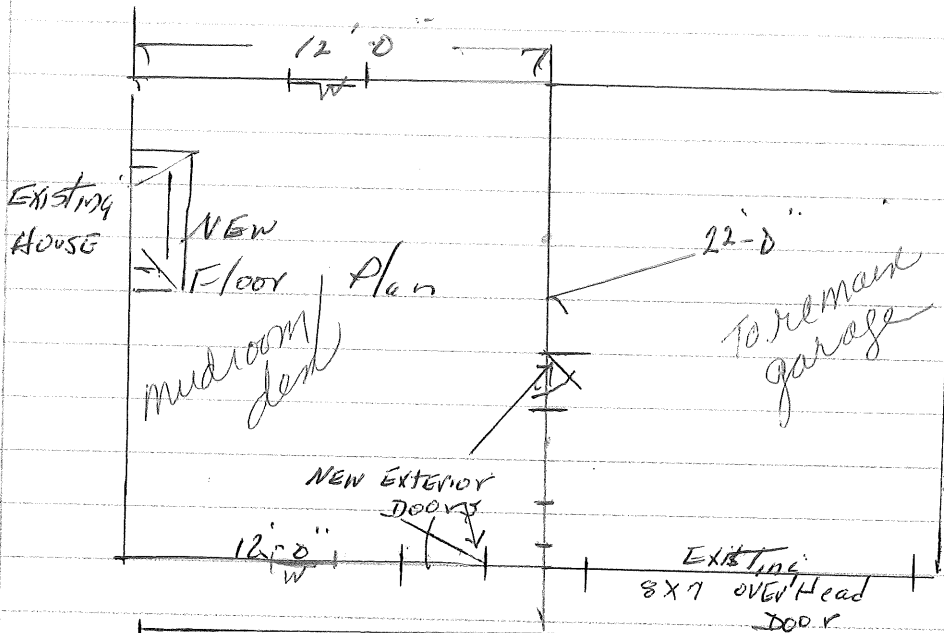 12'-0"
W
Existing
House
New
Floor Plan
mudroom/
den
22'-0"
To remain
garage
New Exterior
Doors
12'-0"
W
Existing
8x7 OverHead
Door